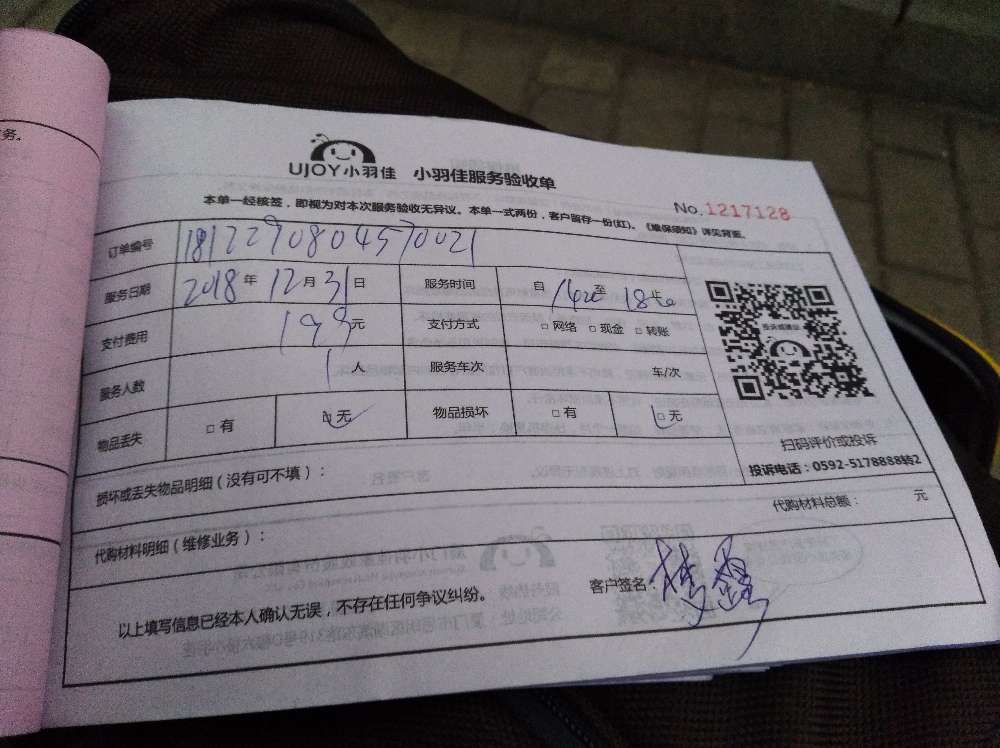 务。
UJOY小羽佳 小羽佳服务验收单
No.1217128
本单一经核签，即视为对本次服务验收无异议。本单一式两份，客户留存一份(红)。《维保须知》详见背面。
订单编号 1812290804570021
服务日期 2018年12月31日 服务时间 自 1400 至 18 止
支付费用 199元 支付方式 □网络 □现金 □转账
服务人数 1人 服务车次 车/次
物品丢失 □有 □无 物品损坏 □有 □无
投诉或建议
扫码评价或投诉
投诉电话：0592-5178888转2
损坏或丢失物品明细（没有可不填）：
代购材料明细（维修业务）： 代购材料总额： 元
以上填写信息已经本人确认无误，不存在任何争议纠纷。 客户签名：